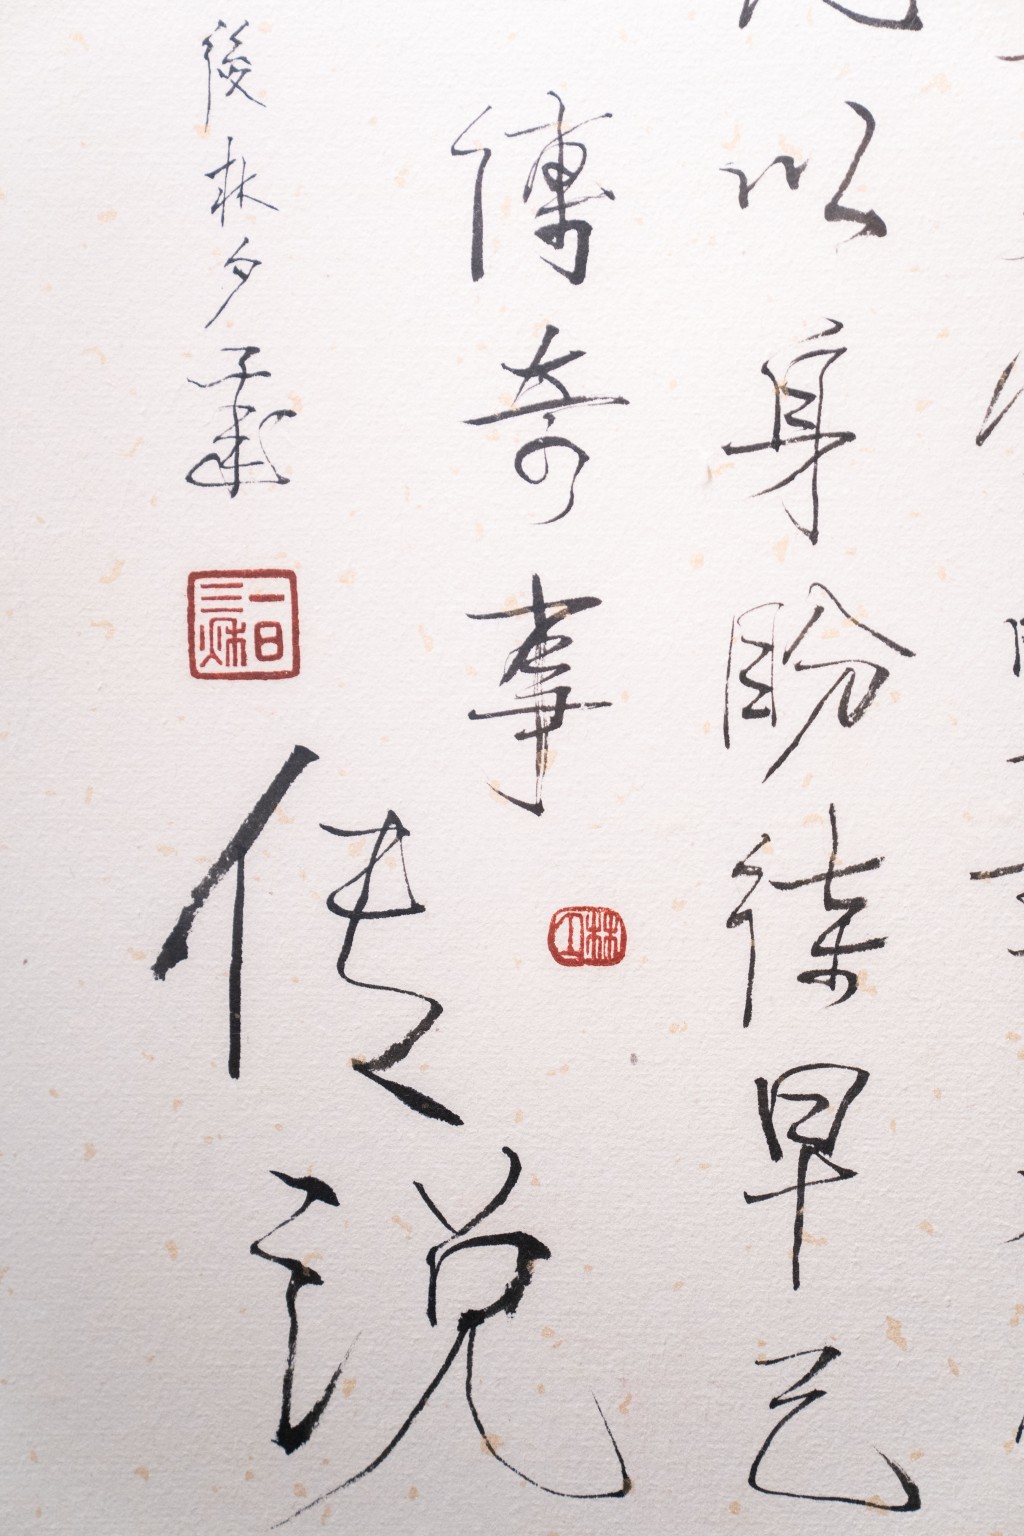 以身盼徒早已
傳奇事
林
後林夕
一日
三秋
传说